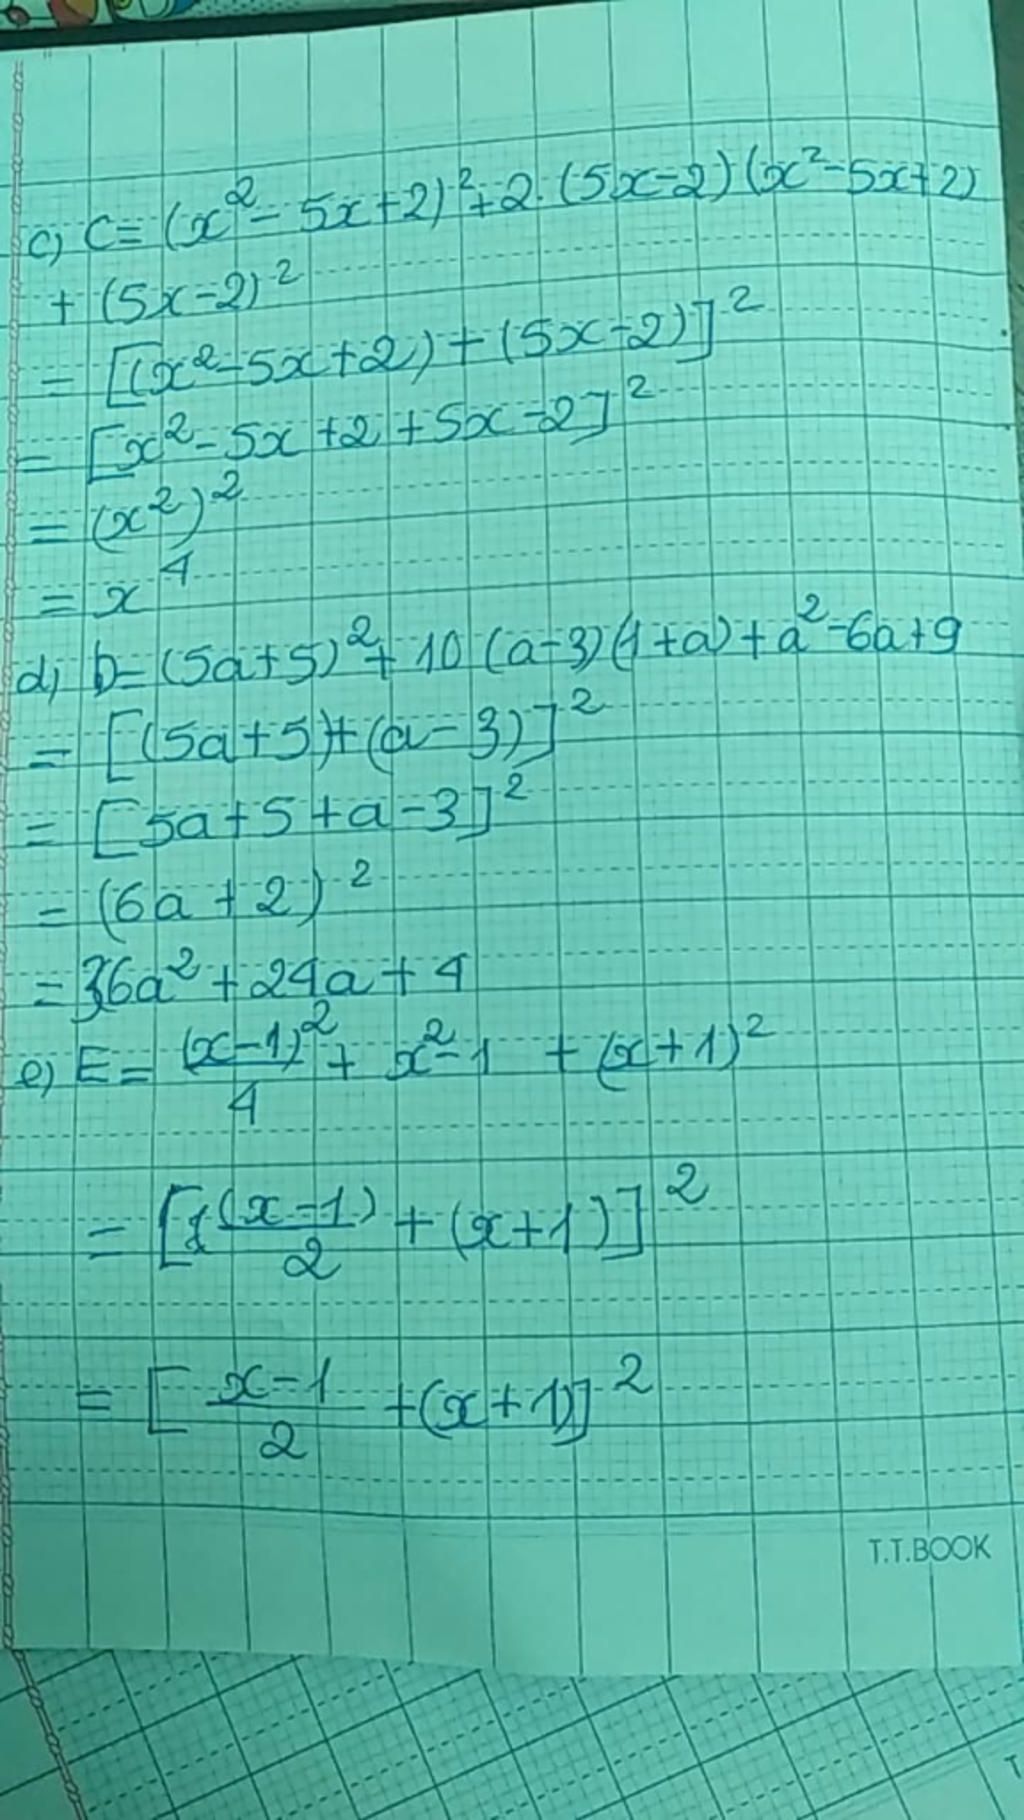 c) C = (x² - 5x + 2)² + 2. (5x - 2) (x² - 5x + 2)
+ (5x - 2)²
= [(x² - 5x + 2) + (5x - 2)]²
= [x² - 5x + 2 + 5x - 2]²
= (x²)²
= x⁴
d) D = (5a + 5)² + 10 (a - 3) (1 + a) + a² - 6a + 9
= [(5a + 5) + (a - 3)]²
= [5a + 5 + a - 3]²
= (6a + 2)²
= 36a² + 24a + 4
e) E = (x - 1)²/4 + x² - 1 + (x + 1)²
= [(x - 1)/2 + (x + 1)]²
= [x - 1/2 + (x + 1)]²
T.T.BOOK